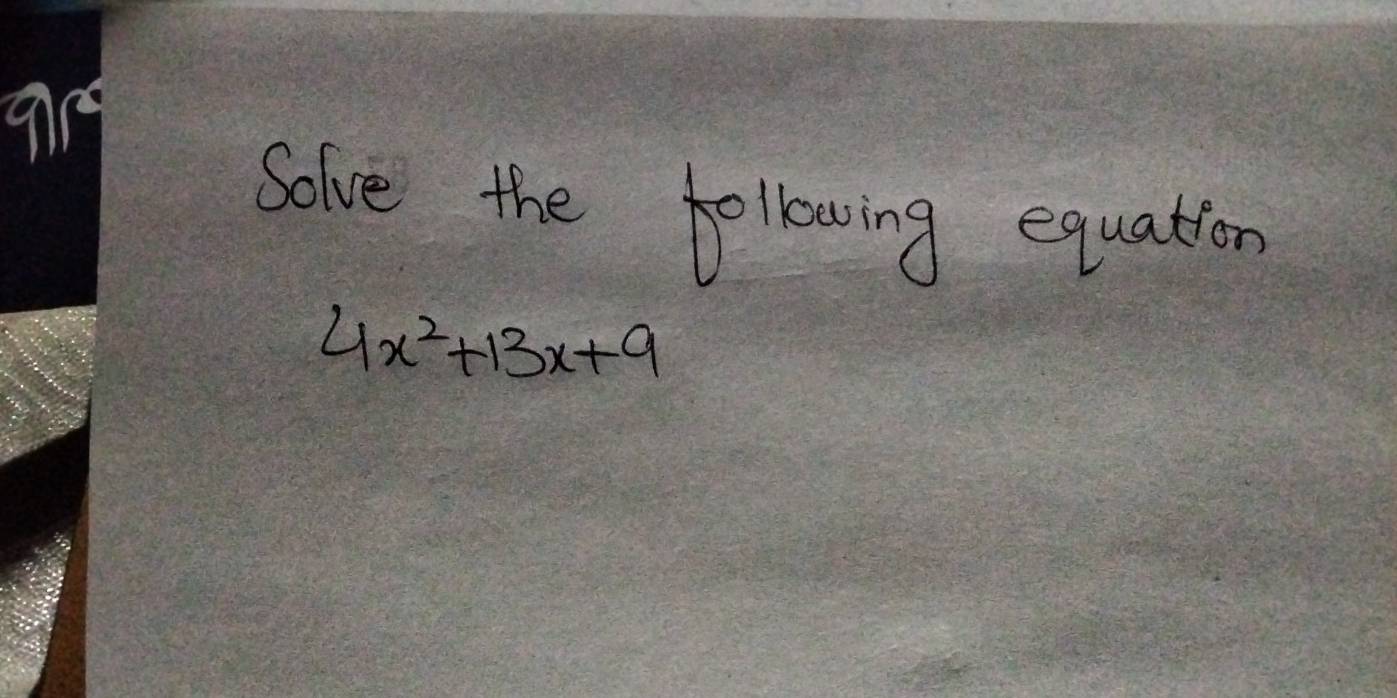 Solve the following equation
4x²+13x+9